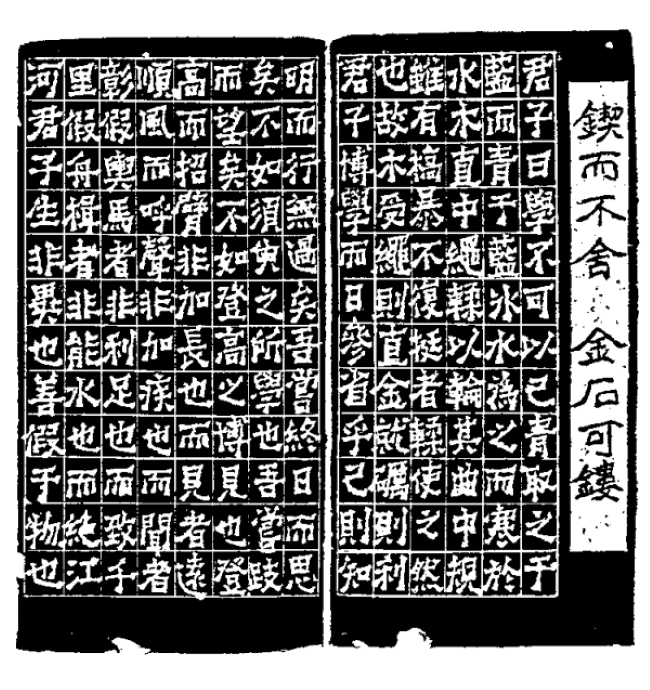 鍥而不舍 金石可鏤
君子曰學不可以已青取之于
藍而青于藍冰水為之而寒於
水木直中繩輮以輪其曲中規
雖有槁暴不復挺者輮使之然
也故木受繩則直金就礪則利
君子博學而日參省乎己則知
明而行無過矣吾嘗終日而思
矣不如須臾之所學也吾嘗跂
而望矣不如登高之博見也登
高而招臂非加長也而見者遠
順風而呼聲非加疾也而聞者
彰假輿馬者非利足也而致千
里假舟楫者非能水也而絕江
河君子生非異也善假于物也